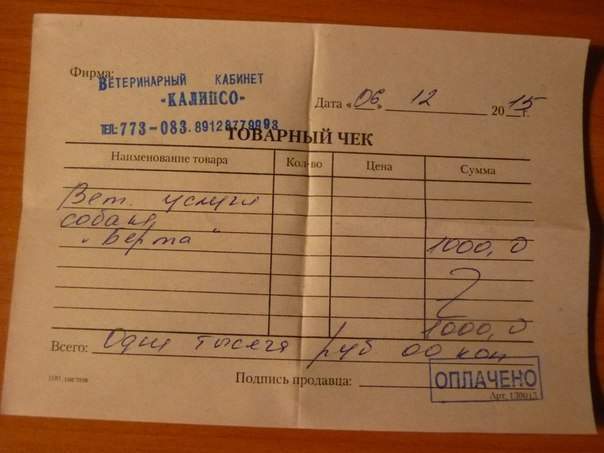 Фирма:
ВЕТЕРИНАРНЫЙ КАБИНЕТ
-КАЛИПСО-
Дата «06» 12 2015 г.
ТЕЛ: 773-083. 89128779993
ТОВАРНЫЙ ЧЕК
Наименование товара Кол-во Цена Сумма
Вет. услуги
собаке
"Берта" 1000,0
1000,0
Всего: Одна тысяча руб 00 коп
Подпись продавца:
ОПЛАЧЕНО